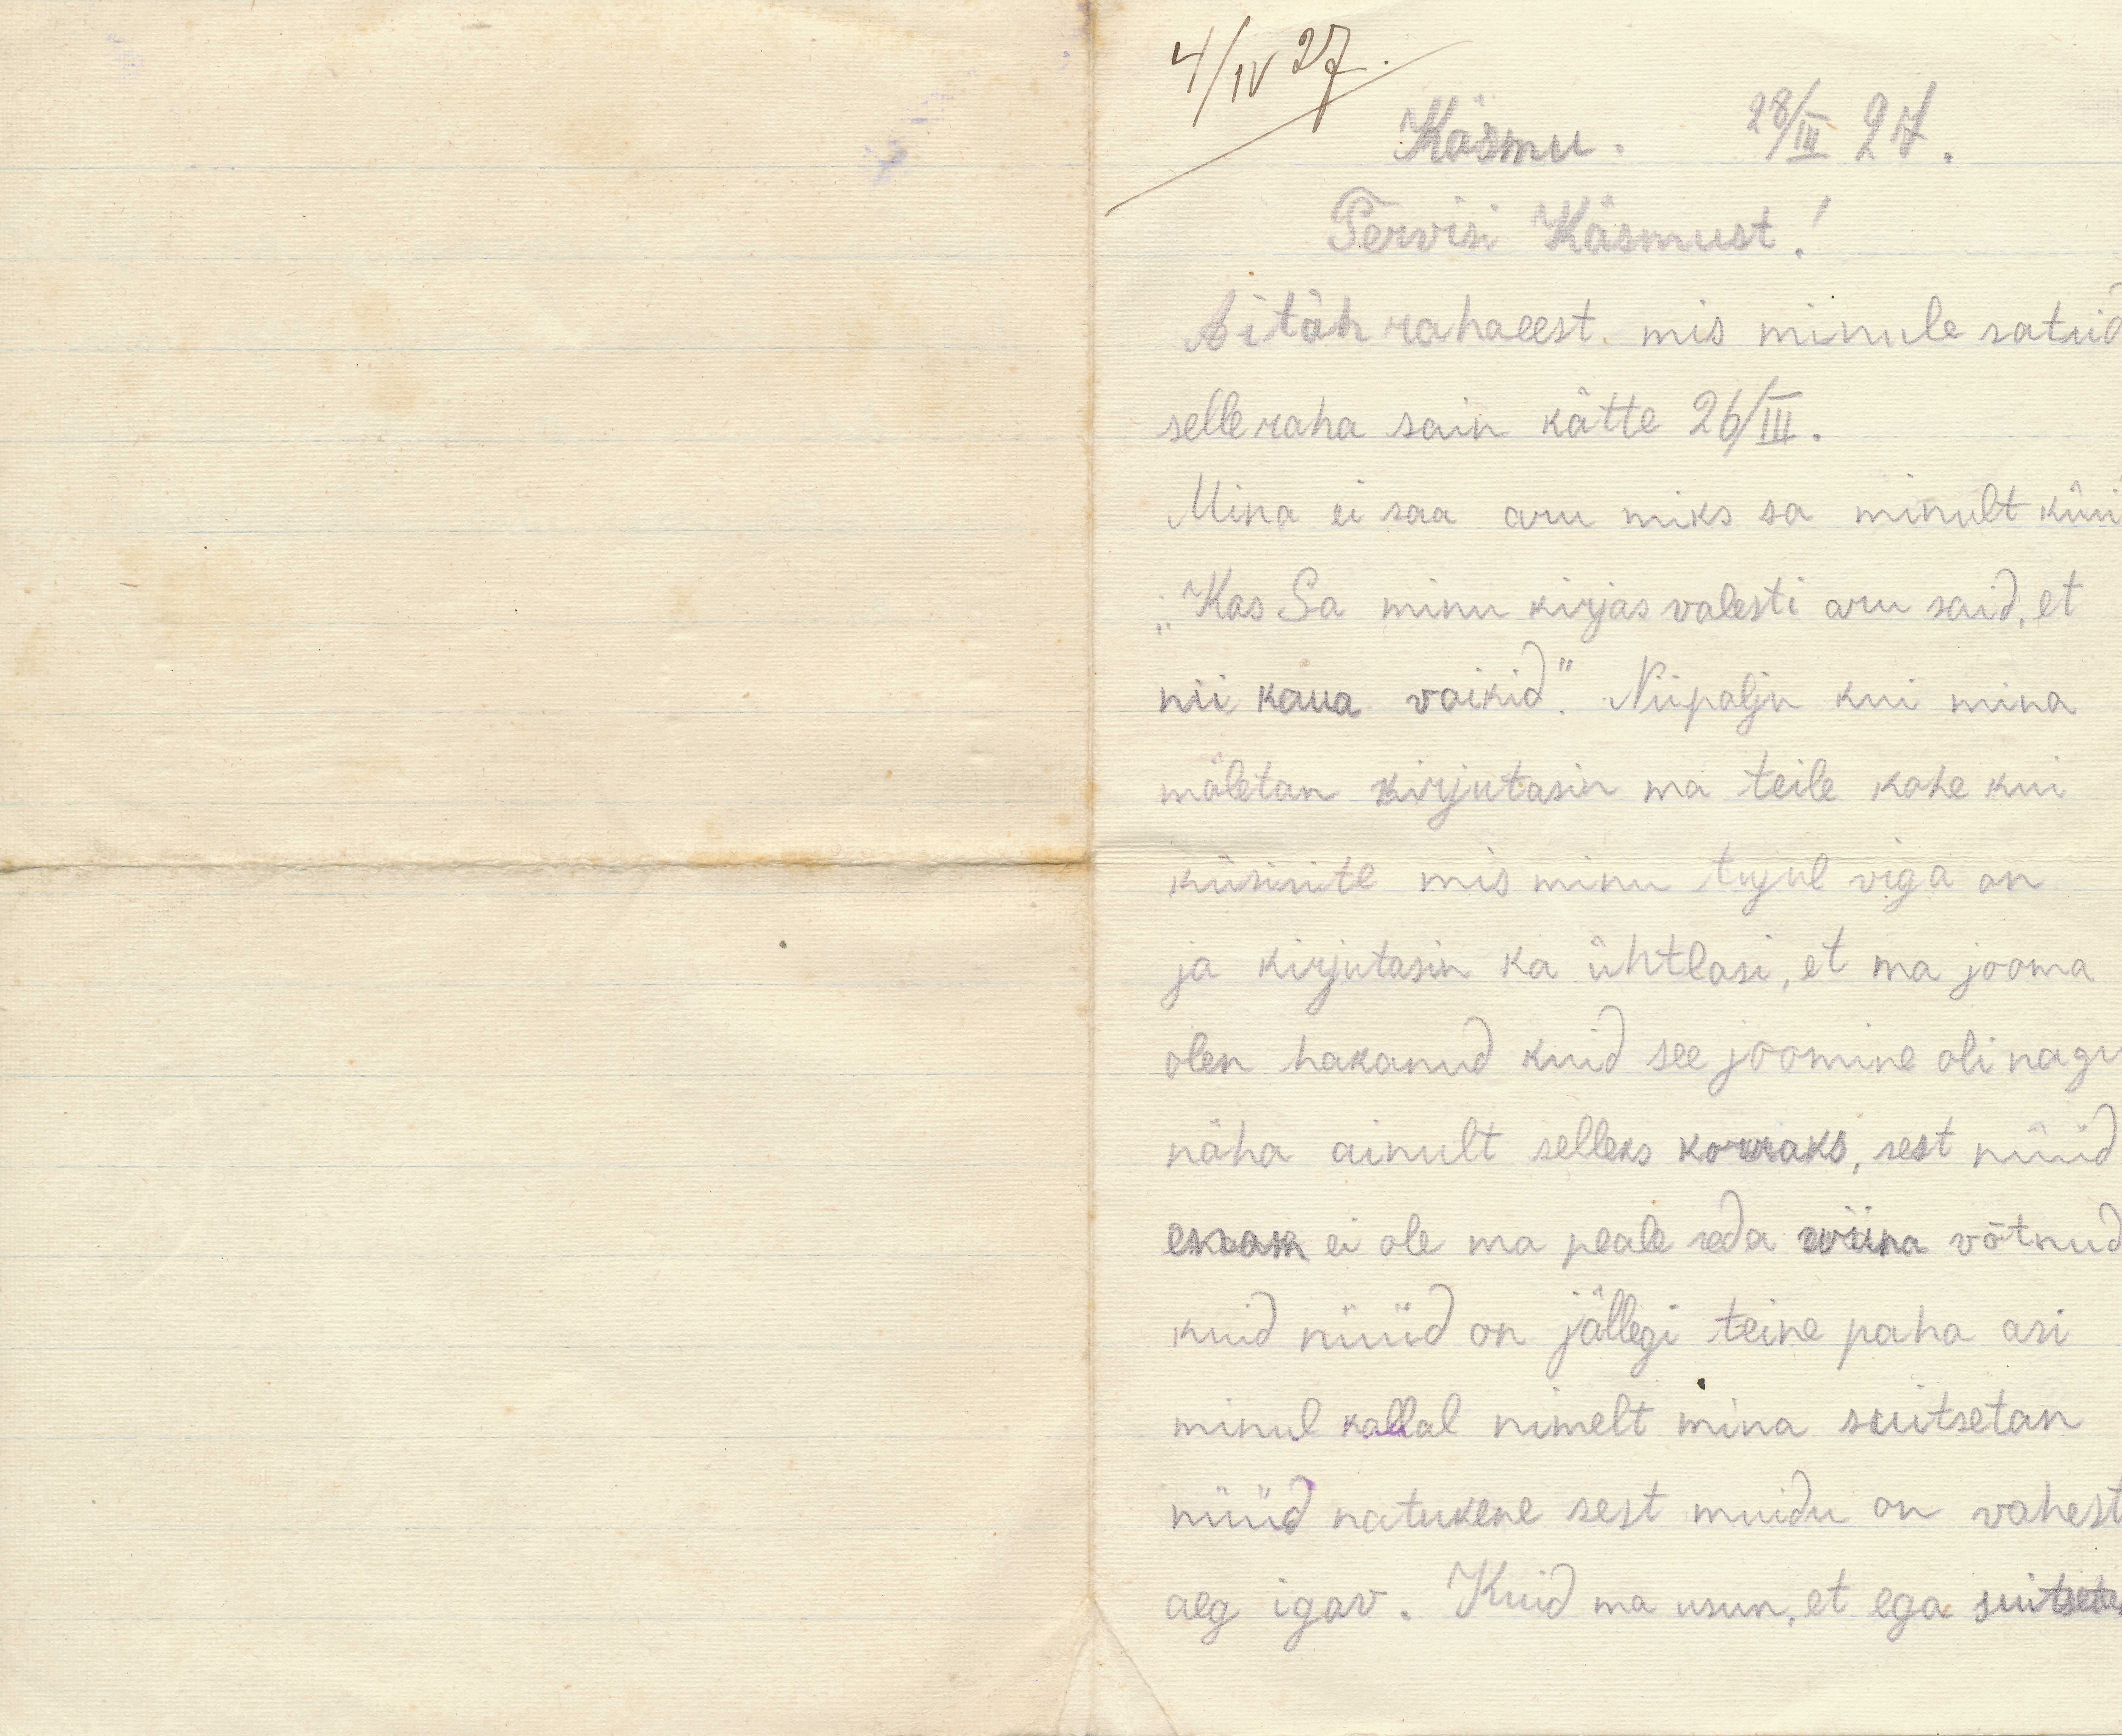 4/IV 27.
Käsmu. 28/III 27.
Tervisi Käsmust!
Aitäh rahaeest. mis minule satid
selle raha sain kätte 26/III.
Mina ei saa aru miks sa minult küsi
„Kas Sa minu kirjas valesti aru said, et
nii kaua vaikid." Niipalju kui mina
mäletan kirjutasin ma teile kohe kui
küsisite mis minu tujul viga on
ja kirjutasin ka ühtlasi, et ma jooma
olen hakanud kuid see joomine oli nagu
näha ainult selleks korraks, sest nüüd
enam ei ole ma peale seda viina võtnud
kuid nüüd on jällegi teine paha asi
minul kallal nimelt mina suitsetan
nüüd natukene sest muidu on vahest
aeg igav. Kuid ma usun, et ega